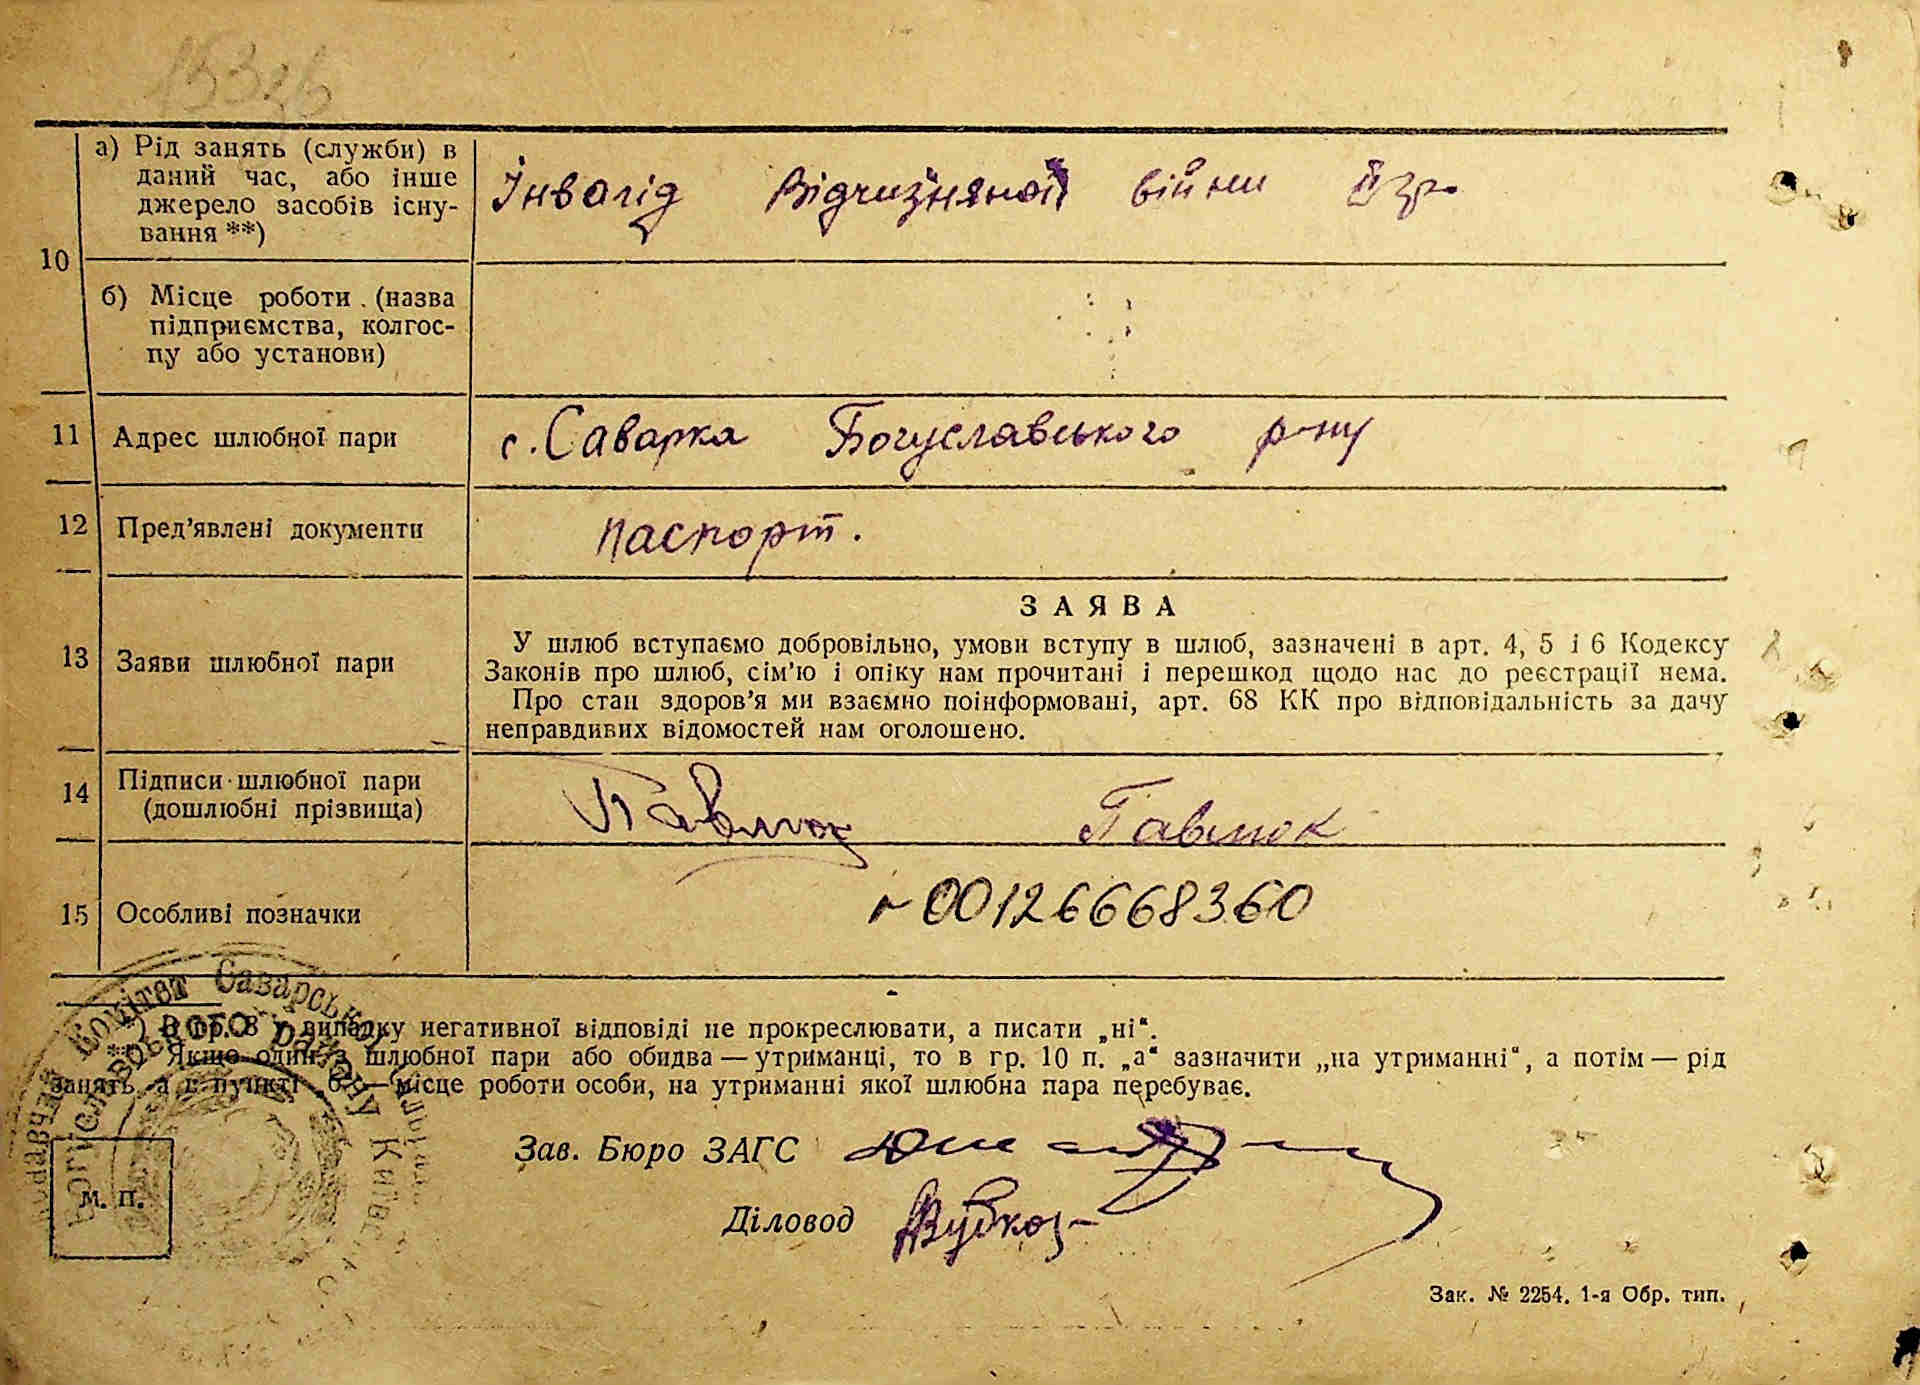 15326
10
а) Рід занять (служби) в
даний час, або інше
джерело засобів існу-
вання **)
Інвалід Вітчизняної війни II гр.
б) Місце роботи (назва
підприємства, колгос-
пу або установи)
11 Адрес шлюбної пари с. Саварка Богуславського р-ну
12 Пред'явлені документи паспорт.
13 Заяви шлюбної пари
ЗАЯВА
У шлюб вступаємо добровільно, умови вступу в шлюб, зазначені в арт. 4, 5 і 6 Кодексу
Законів про шлюб, сім'ю і опіку нам прочитані і перешкод щодо нас до реєстрації нема.
Про стан здоров'я ми взаємно поінформовані, арт. 68 КК про відповідальність за дачу
неправдивих відомостей нам оголошено.
14 Підписи шлюбної пари
(дошлюбні прізвища)
Павлюк Павлюк
15 Особливі позначки 00126668360
*) В гр. 8 у випадку негативної відповіді не прокреслювати, а писати „ні“.
**) Якщо один з шлюбної пари або обидва — утриманці, то в гр. 10 п. „а“ зазначити „на утриманні“, а потім — рід
занять, а в пункті „б“ — місце роботи особи, на утриманні якої шлюбна пара перебуває.
Комітет Саварської
Богуславського району Київсько
Зав. Бюро ЗАГС
Діловод
м. п.
Зак. № 2254. 1-я Обр. тип.